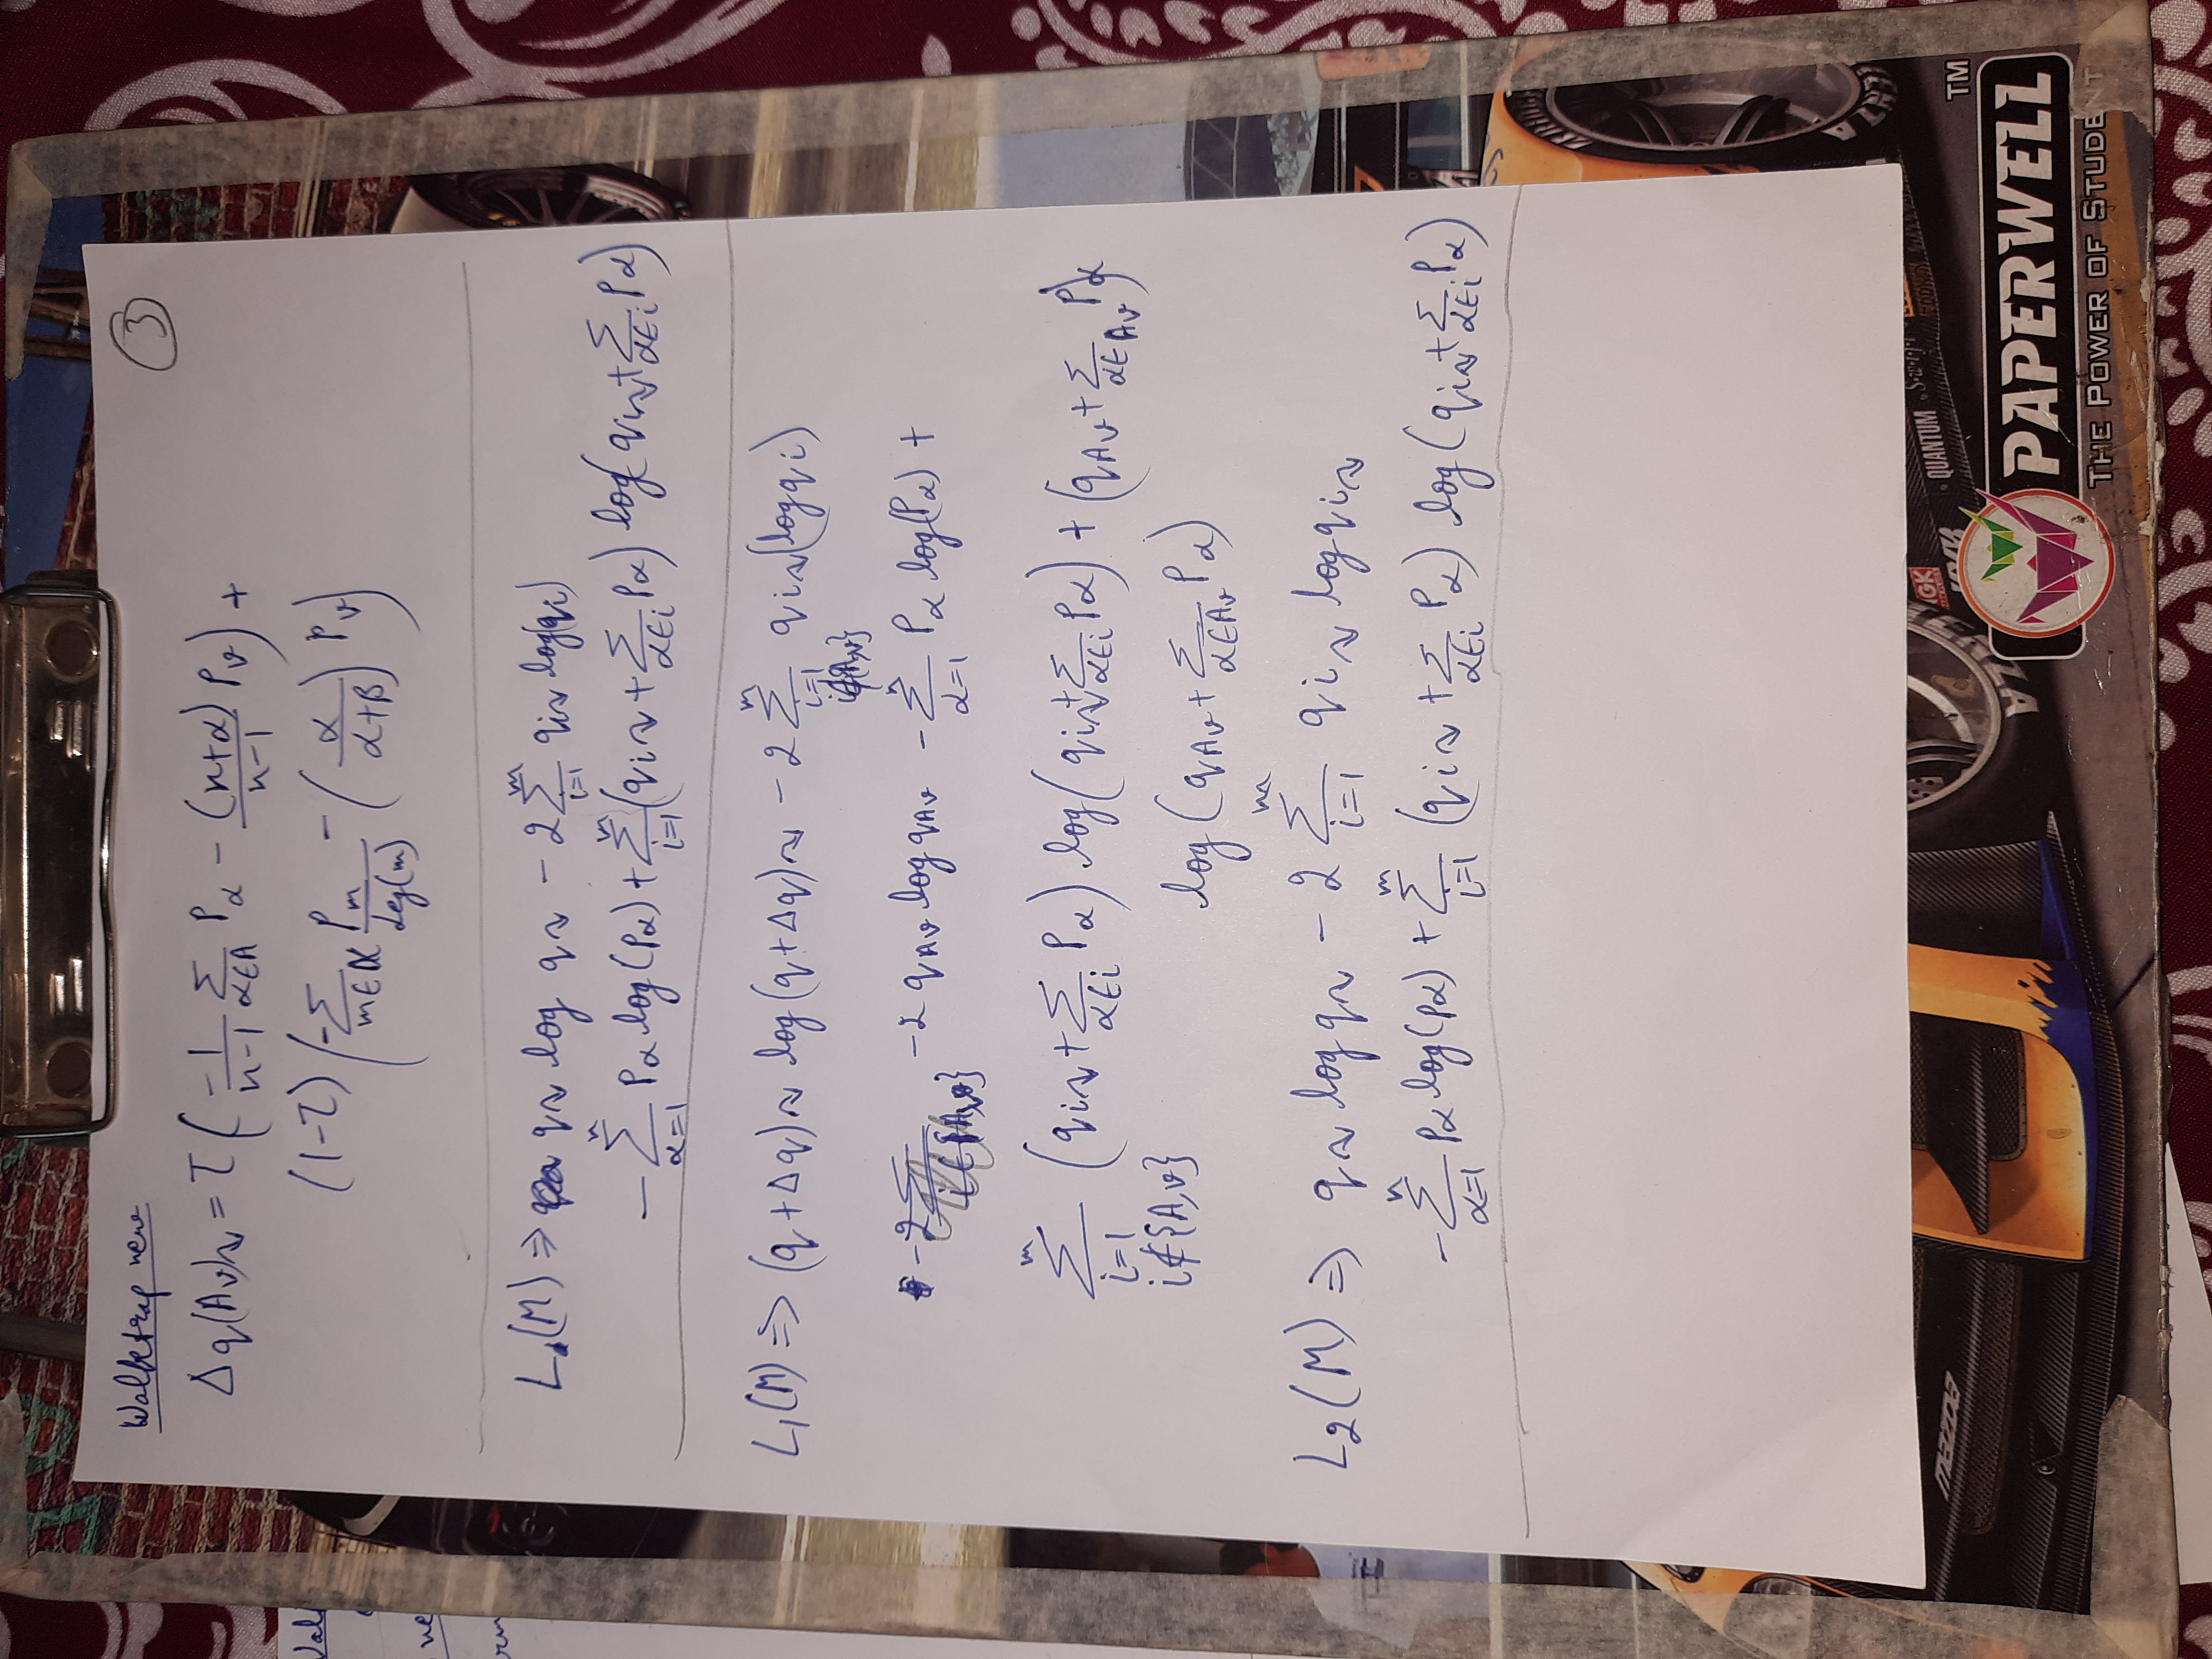 Walktrap new
③
Δq(Av)↷ = τ( -1/(n-1) Σ_{α∈A} P_α - (n+α)/(n-1) P_v ) +
(1-τ) ( -Σ_{m∈α} P_m/deg(m) - (α/(α+β)) P_v )
L.(M) ⇒ q↷ log q↷ - 2 Σ_{i=1}^{m} qi↷ log(qi)
- Σ_{α=1}^{n} Pα log(pα) + Σ_{i=1}^{m} (qi↷ + Σ_{α∈i} Pα) log(qi↷ + Σ_{α∈i} Pα)
L₁(M) ⇒ (q+Δq)↷ log(q+Δq)↷ - 2 Σ_{i=1}^{m} qi↷(log qi)
i∉{A,v}
-2 q_Av log q_Av - Σ_{α=1}^{n} Pα log(Pα) +
Σ_{i=1}^{m} (qi↷ + Σ_{α∈i} Pα) log(qi↷ + Σ_{α∈i} Pα) + (q_Av + Σ_{α∈Av} Pα)
i∉{A,v}
log(q_Av + Σ_{α∈Av} Pα)
L₂(M) ⇒ q↷ log q↷ - 2 Σ_{i=1}^{m} qi↷ log qi↷
- Σ_{α=1}^{n} Pα log(pα) + Σ_{i=1}^{m} (qi↷ + Σ_{α∈i} Pα) log(qi↷ + Σ_{α∈i} Pα)
mazda
NGK
QUANTUM
TM
PAPERWELL
THE POWER OF STUDENT